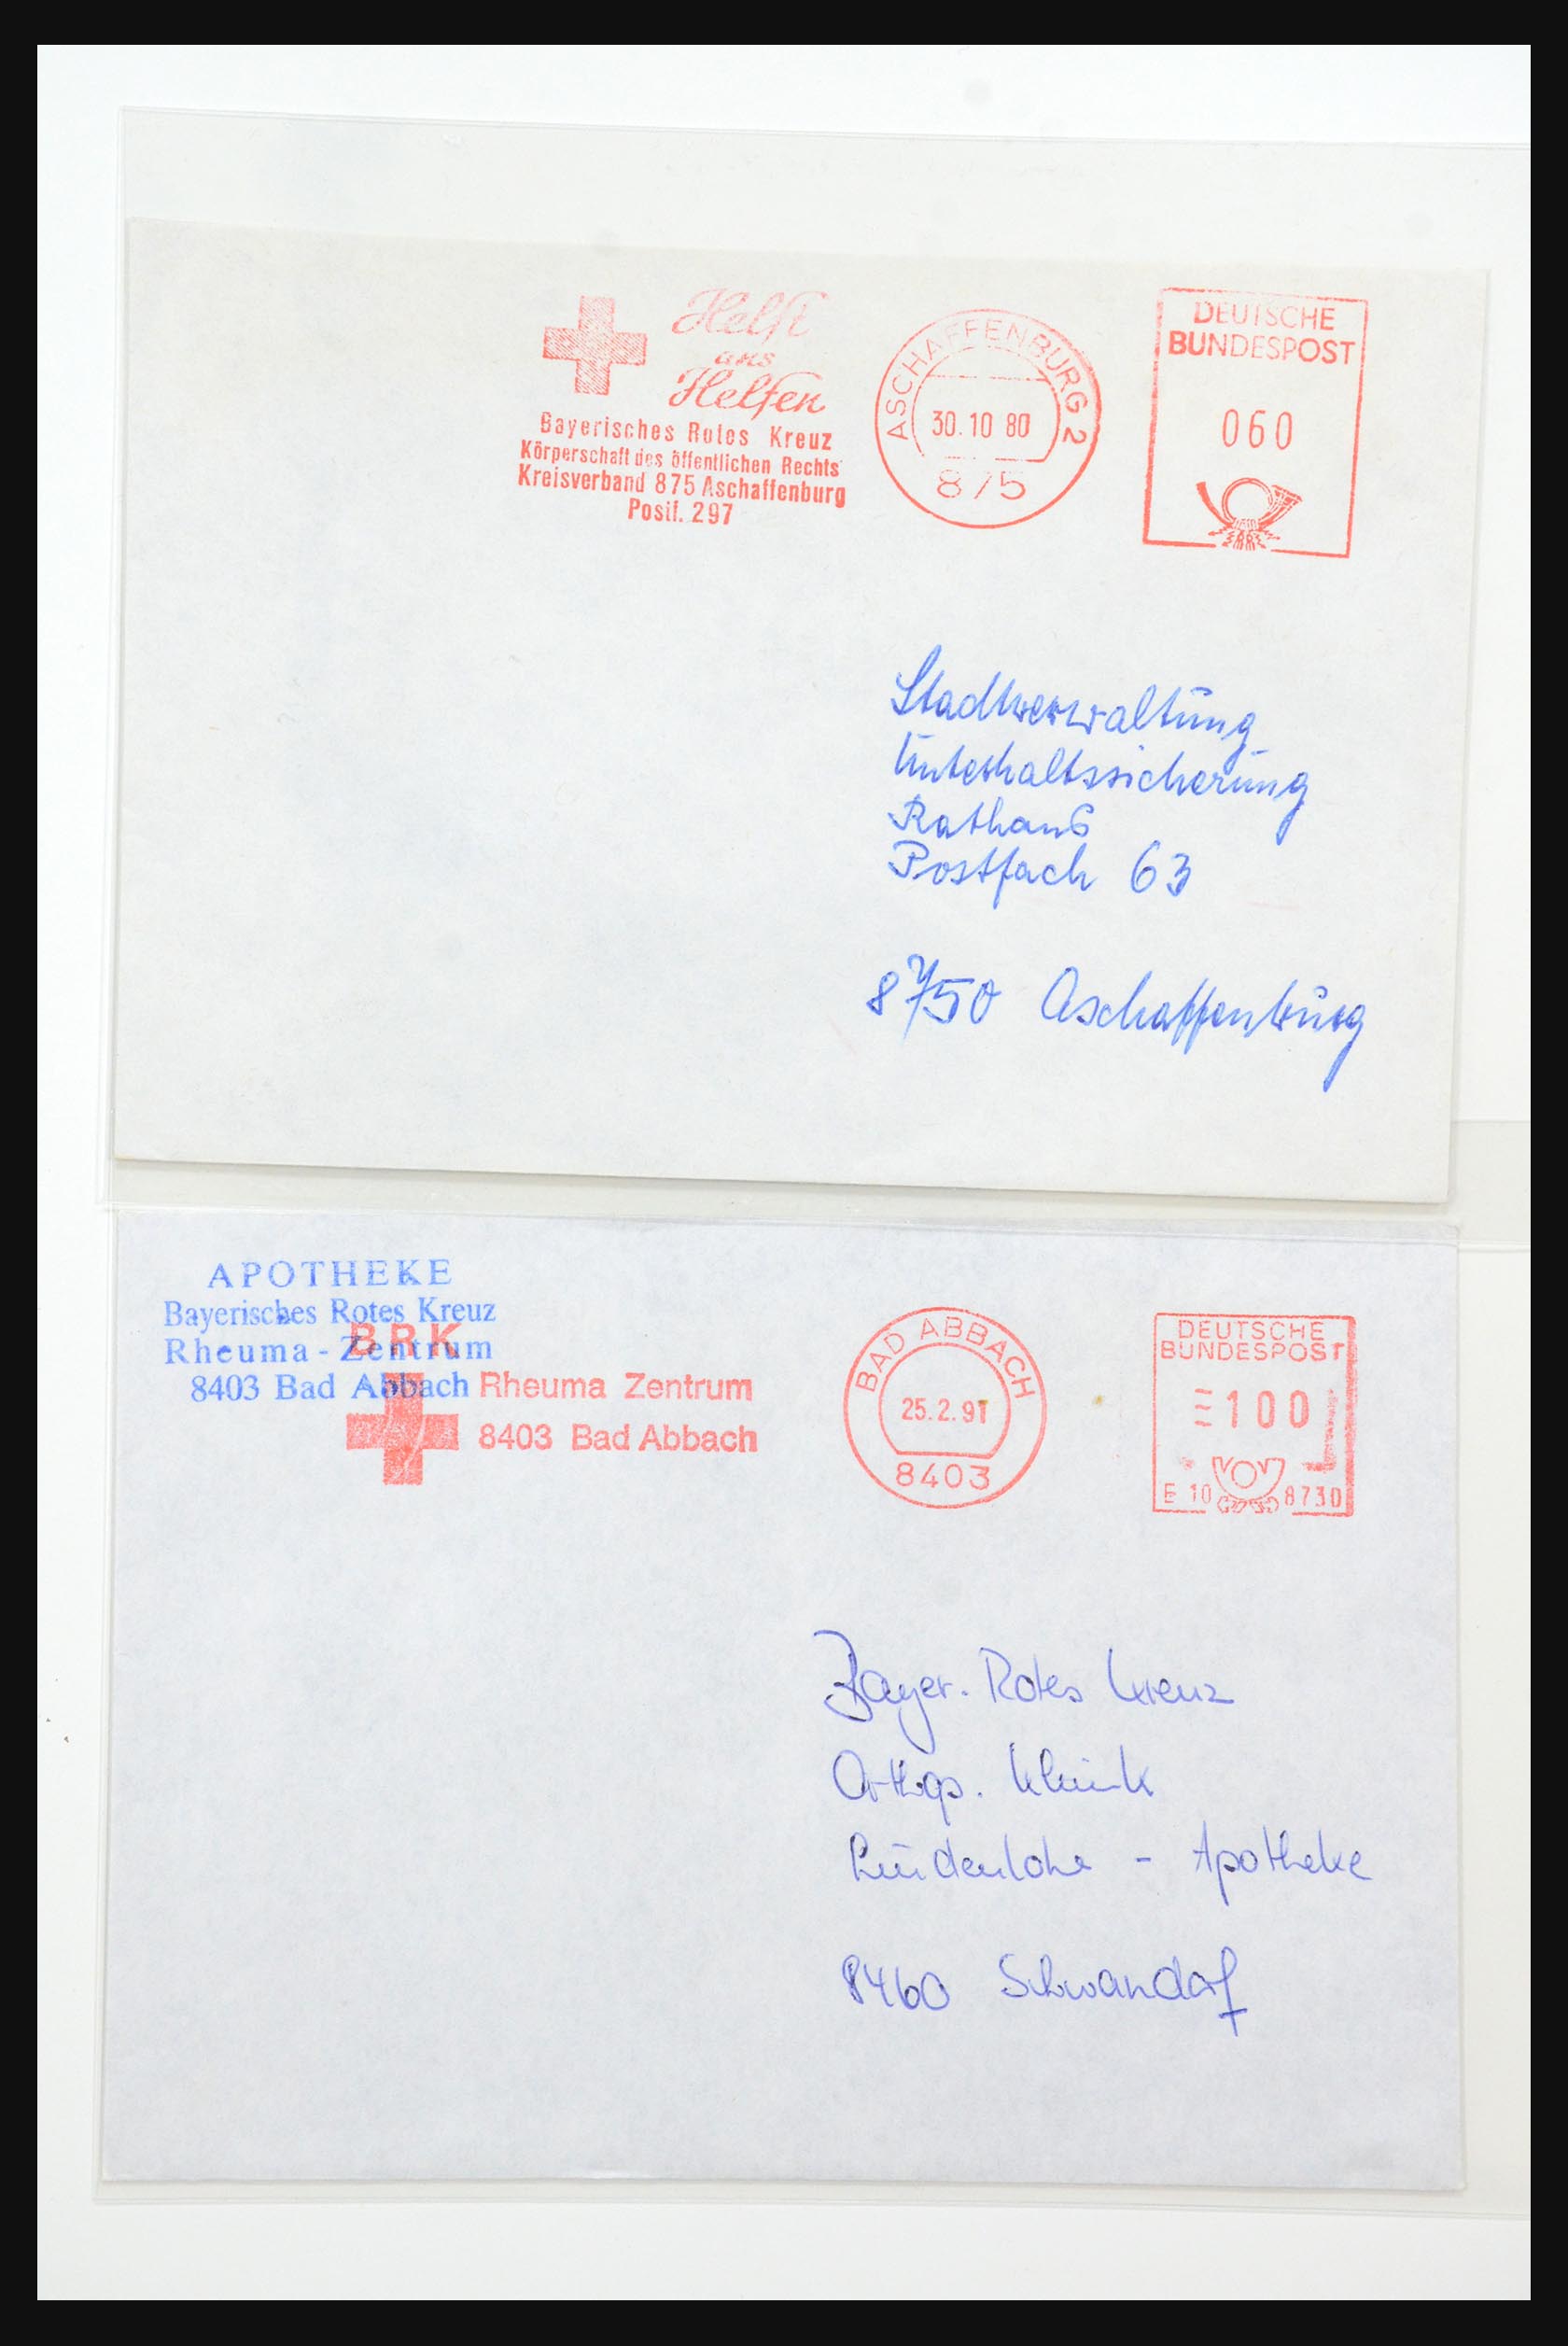 Helft
uns
Helfen
Bayerisches Rotes Kreuz
Körperschaft des öffentlichen Rechts
Kreisverband 875 Aschaffenburg
Postf. 297
ASCHAFFENBURG 2
30.10 80
875
DEUTSCHE
BUNDESPOST
060
Stadtverwaltung
Unterhaltssicherung
Rathaus
Postfach 63
8750 Aschaffenburg
APOTHEKE
Bayerisches Rotes Kreuz
Rheuma-Zentrum
8403 Bad Abbach
BRK
Rheuma Zentrum
8403 Bad Abbach
BAD ABBACH
25.2.91
8403
DEUTSCHE
BUNDESPOST
100
E 10 8730
Bayer. Rotes Kreuz
Orthop. Klinik
Lindenlohe - Apotheke
8460 Schwandorf